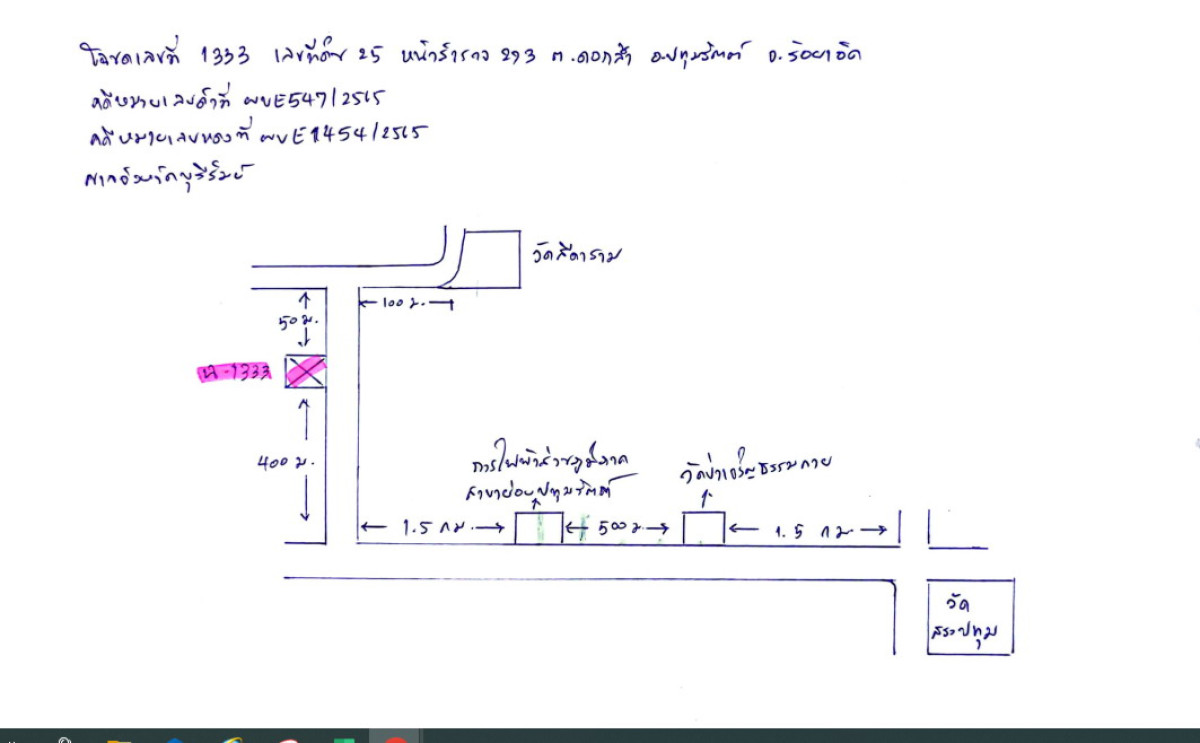 โฉนดเลขที่ 1333 เลขที่ดิน 25 หน้าสำรวจ 293 ต.ดอกล้ำ อ.ปทุมรัตต์ จ.ร้อยเอ็ด
คดีหมายเลขดำที่ ผบE547/2565
คดีหมายเลขแดงที่ ผบE1454/2565
ศาลจังหวัดบุรีรัมย์
วัดสีดาราม
100 ม.
50 ม.
น.1333
400 ม.
การไฟฟ้าส่วนภูมิภาค
สาขาย่อยปทุมรัตต์
วัดป่าเจริญธรรมกาย
1.5 กม.
500 ม.
1.5 กม.
วัด
สระปทุม